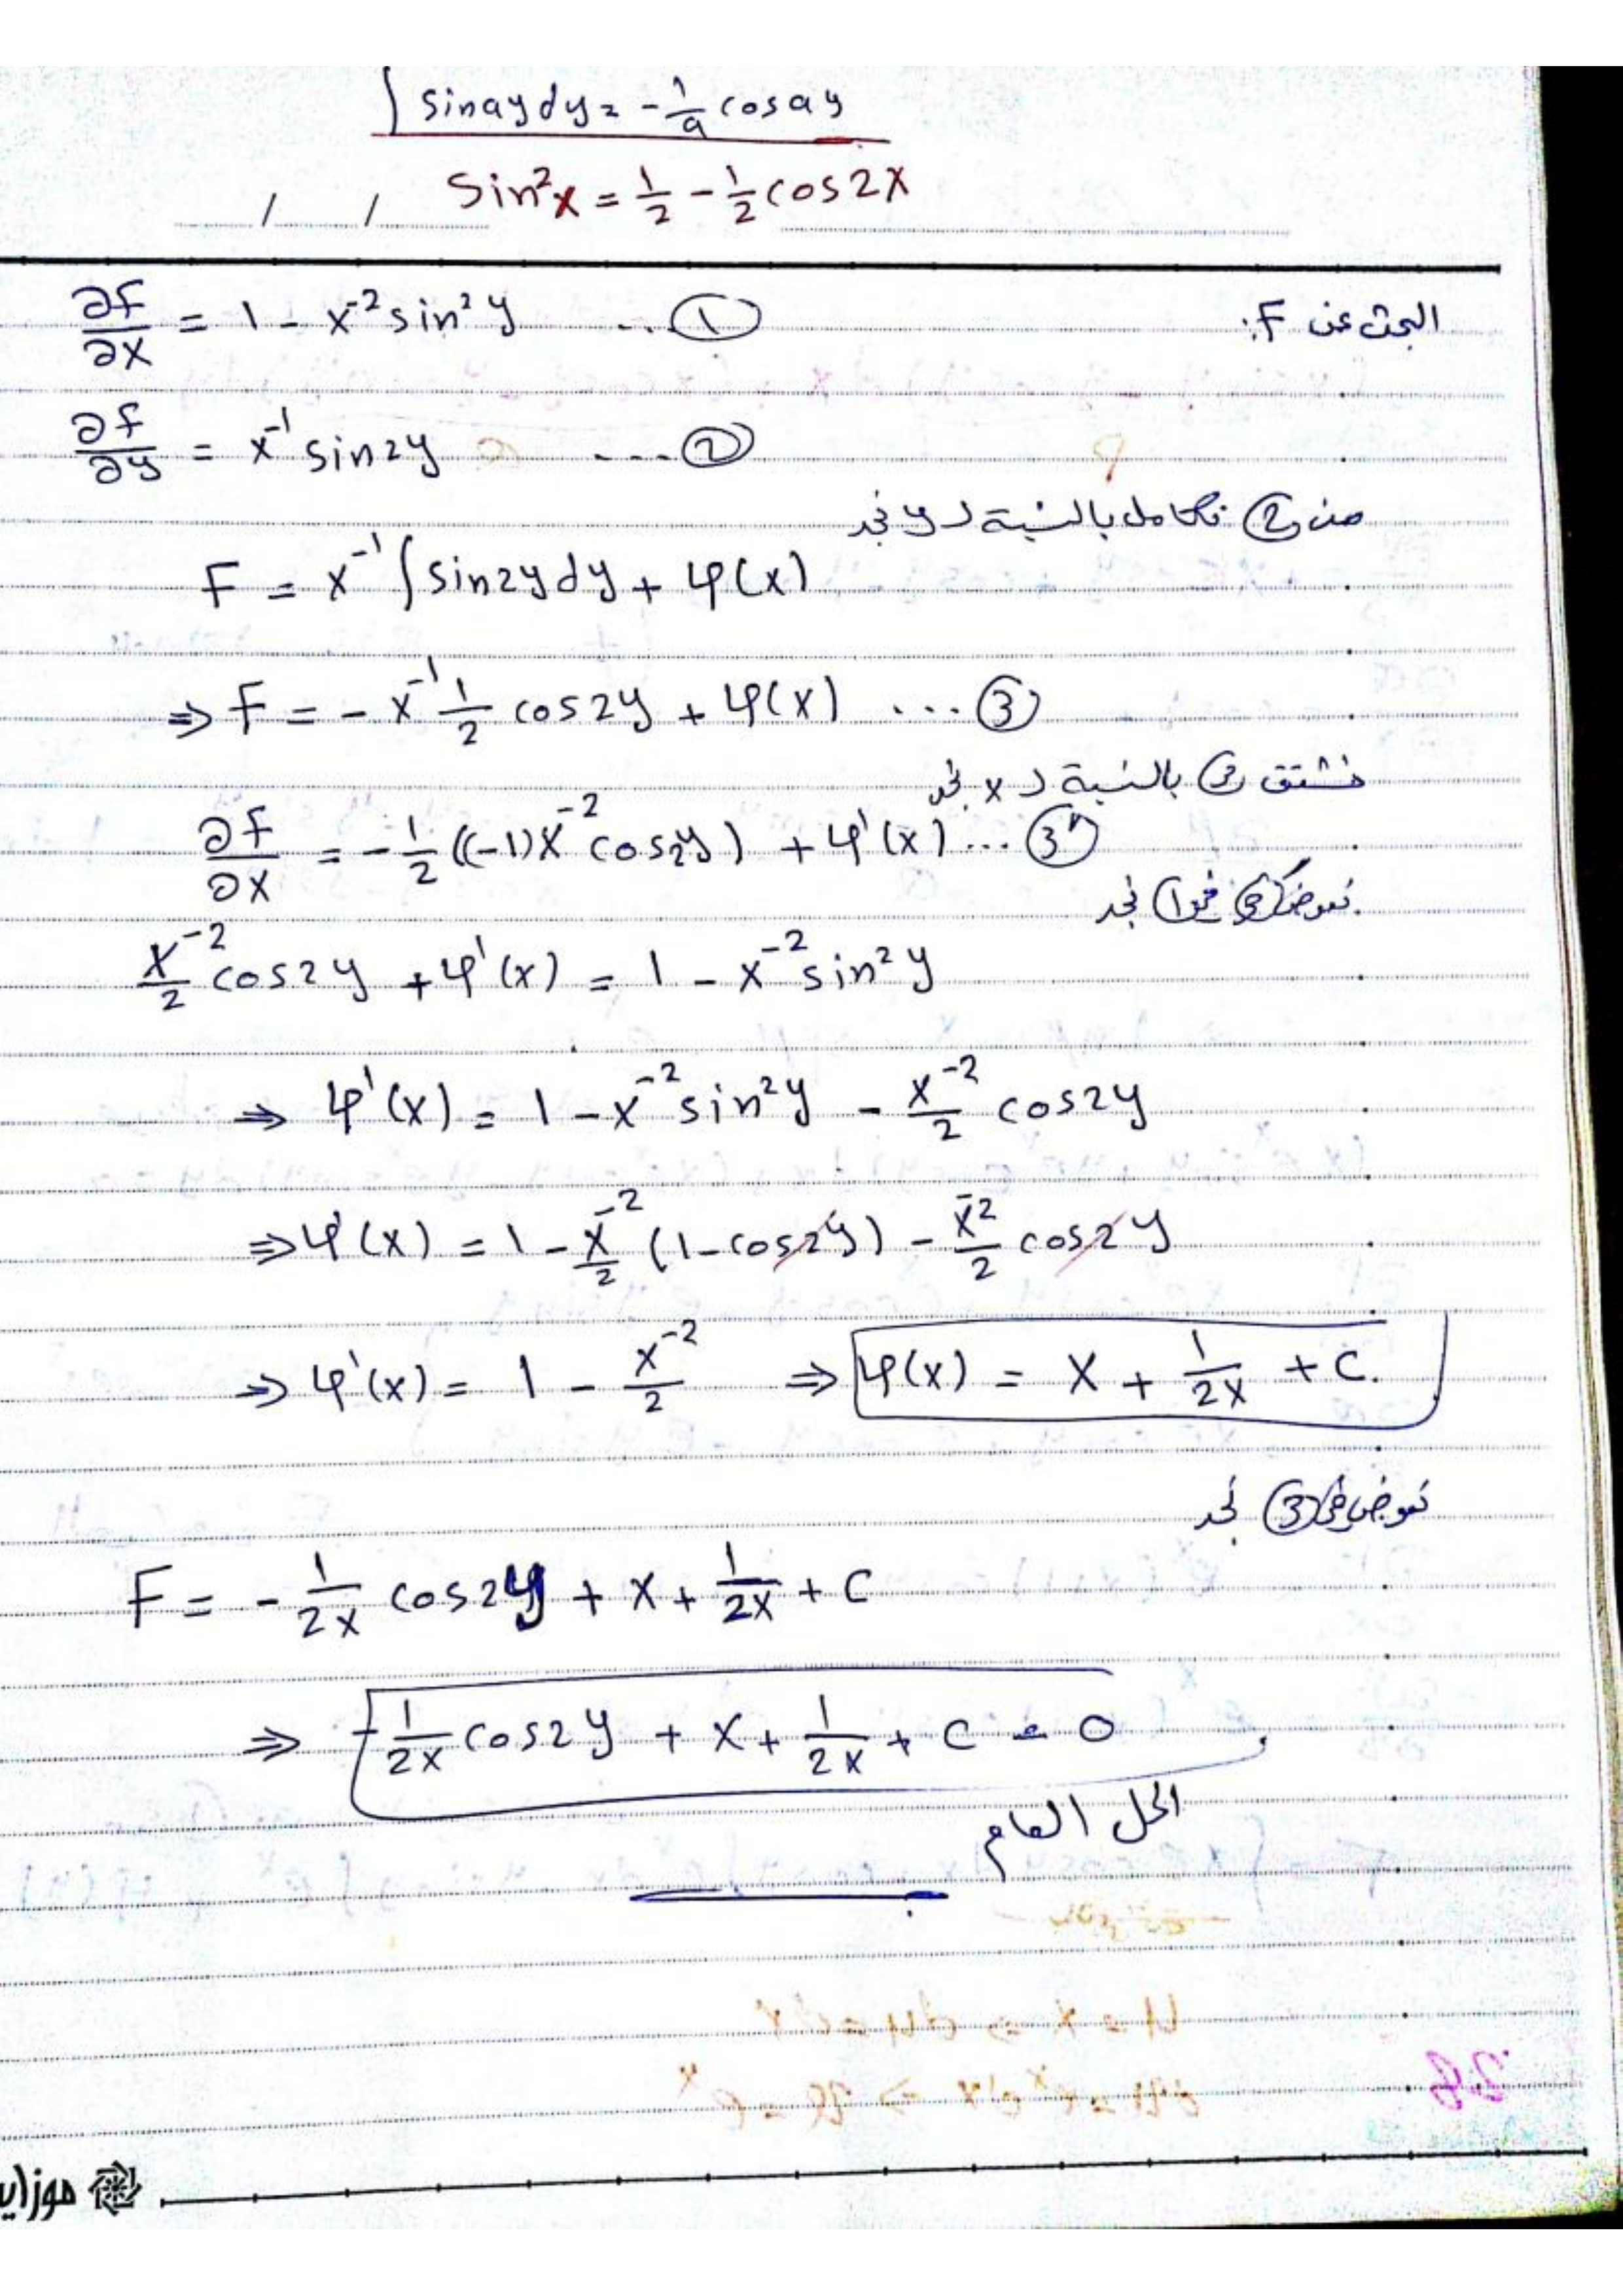 ∫ sin ay dy = -1/a cos ay
Sin²x = 1/2 - 1/2 cos2x
/ /
البحث عن F:
∂F/∂x = 1 - x⁻² sin²y ... ①
∂F/∂y = x⁻¹ sin2y .... ②
من ② نكامل بالنسبة لـ y نجد
F = x⁻¹ ∫ sin2y dy + φ(x)
⇒ F = - x⁻¹ 1/2 cos2y + φ(x) ... ③
نشتق ③ بالنسبة لـ x نجد
∂F/∂x = -1/2 ((-1)x⁻² cos2y) + φ'(x) ... ③'
نعوض ③' في ① نجد
x⁻²/2 cos2y + φ'(x) = 1 - x⁻² sin²y
⇒ φ'(x) = 1 - x⁻² sin²y - x⁻²/2 cos2y
⇒ φ'(x) = 1 - x⁻²/2 (1 - cos2y) - x⁻²/2 cos2y
⇒ φ'(x) = 1 - x⁻²/2 ⇒ φ(x) = x + 1/2x + C.
نعوض في ③ نجد
F = - 1/2x cos2y + x + 1/2x + C
⇒ -1/2x cos2y + x + 1/2x + C = 0
الحل العام